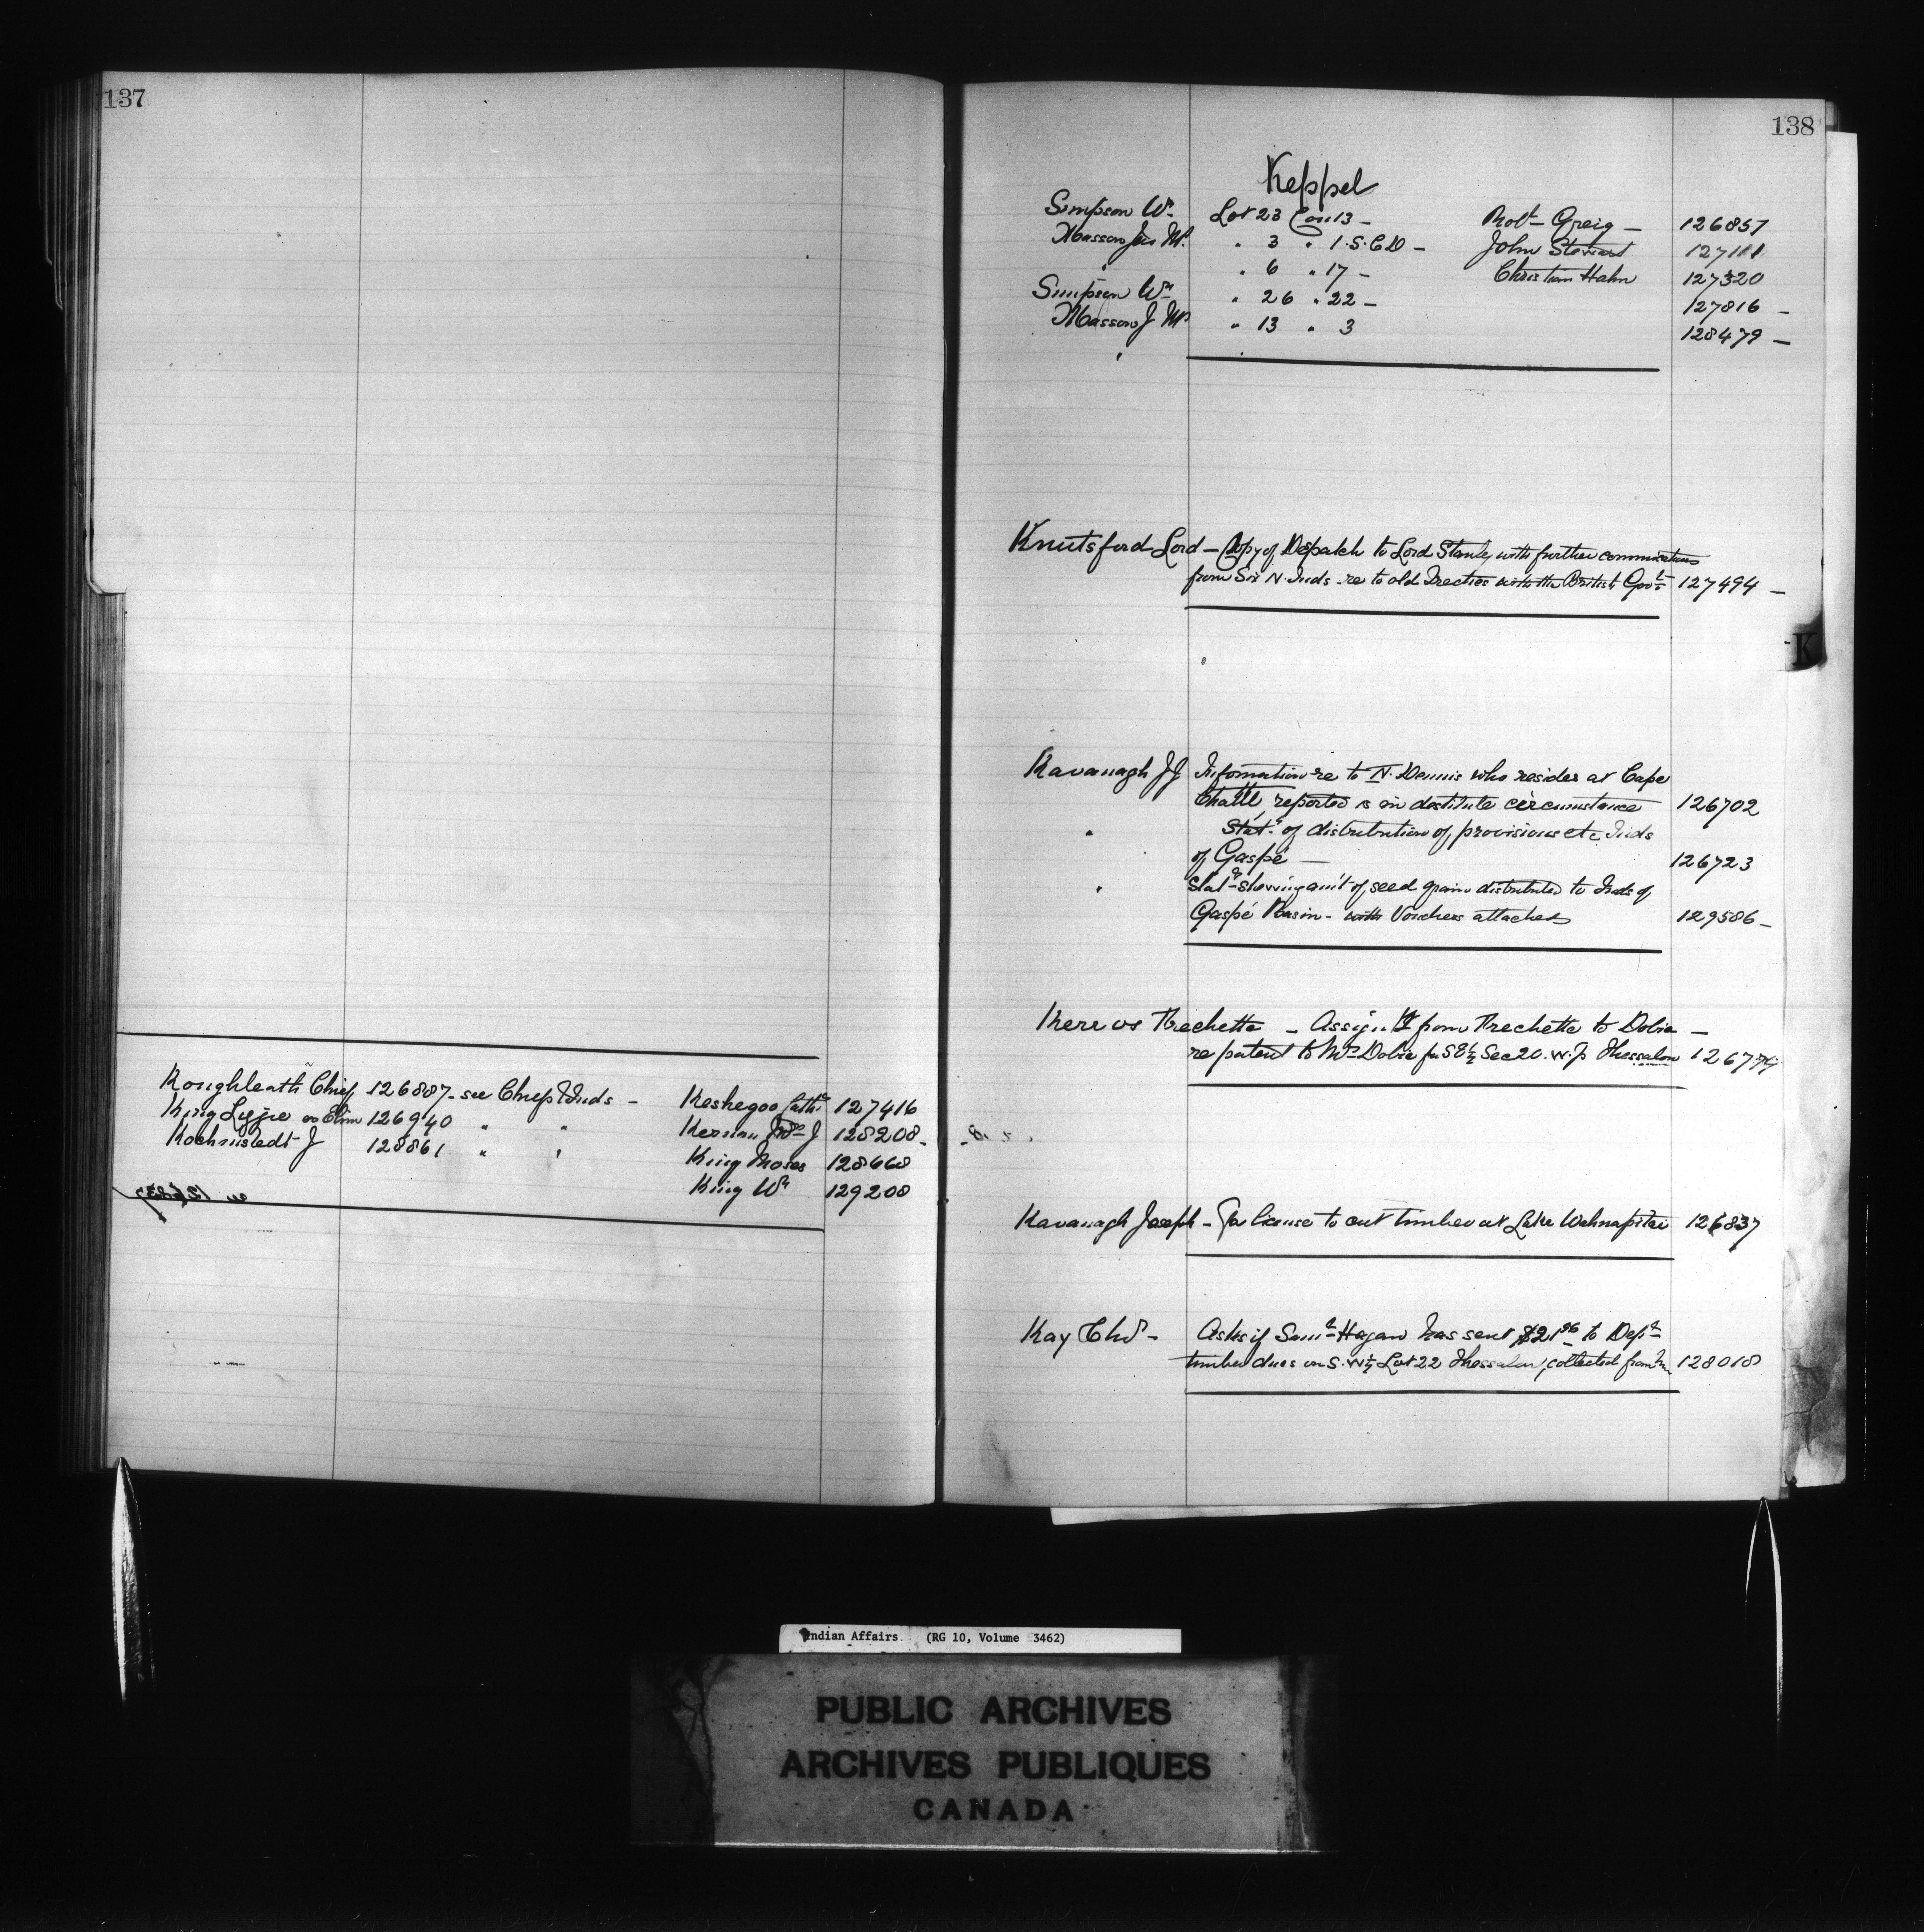 137
Chief 126887 - see Chiefs & Inds - Keshegoo Cath 127416
King Lizzie or Elim 126940 " " Kernan J 128208 -
Kochmstedt J 128861 " " King Moses 128668
King Wm 129208
138
Keppel
Simpson Wm Lot 23 Con 13 - Robt Greig - 126857
Masson Jas M. " 3 " 1. S.C.D - John Stewart 127111
" 6 " 17 - Christian Hahn 127320
Simpson Wm " 26 " 22 - 127816 -
Masson J M " 13 " 3 128479 -
Knutsford Lord - Copy of Despatch to Lord Stanley with further communications
from Six N. Inds - re to old Treaties with the British Govt 127494 -
K
Kavanagh JJ Information re to N. Dennis who resides at Cape
Chatte reported is in destitute circumstance 126702
" Statt of distribution of provisions etc Inds
of Gaspé - 126723
" Statt showing am't of seed grain distributed to Inds of
Gaspé Basin - with Vouchers attached 129586 -
Kerr vs Frechette - Assignt from Frechette to Dobie -
re patent to Mrs Dobie for S E ½ Sec 20. W. P Thessalon
Kavanagh Joseph - For license to cut timber at Lake Wahnapitae 126837
Kay Thos - Asks if Saml Hagan has sent $21.96 to Dept
timber dues on S. W ¼ Lot 22 Thessalon, collected from him 128018
Indian Affairs. (RG 10, Volume 3462)
PUBLIC ARCHIVES
ARCHIVES PUBLIQUES
CANADA